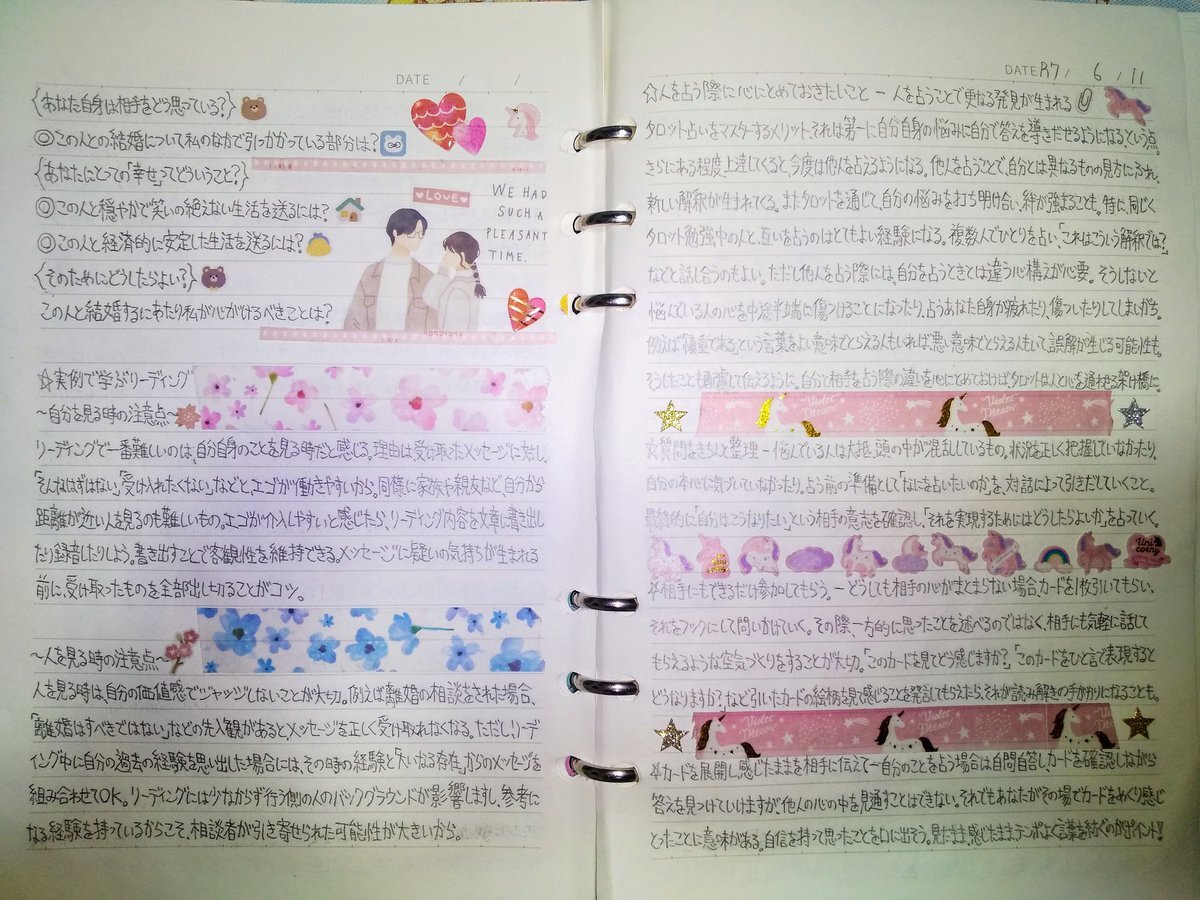 DATE / /
{あなた自身は相手をどう思っている?}
◎この人との結婚について私のなかで引っかかっている部分は?
{あなたにとっての「幸せ」ってどういうこと?}
◎この人と穏やかで笑いの絶えない生活を送るには?
◎この人と経済的に安定した生活を送るには?
{そのためにどうしたらよい?}
この人と結婚するにあたり私が心がけるべきことは?
LOVE
WE HAD
SUCH A
PLEASANT
TIME.
☆実例で学ぶリーディング
~自分を見る時の注意点~
リーディングで一番難しいのは、自分自身のことを見る時だと感じる。理由は受け取ったメッセージに対し、
「そんなはずはない」「受け入れたくない」などと、エゴが働きやすいから。同様に家族や親友など、自分から
距離が近い人を見るのも難しいもの。エゴが介入しやすいと感じたら、リーディング内容を文章に書き出し
たり録音したりしよう。書き出すことで客観性を維持できる。メッセージに疑いの気持ちが生まれる
前に、受け取ったものを全部出し切ることがコツ。
~人を見る時の注意点~
人を見る時は、自分の価値感でジャッジしないことが大切。例えば離婚の相談をされた場合、
「離婚はすべきではない」などの先入観があると、メッセージを正しく受け取れなくなる。ただしリーデ
ィング中に自分の過去の経験を思い出した場合には、その時の経験と「大いなる存在」からのメッセージを
組み合わせてOK。リーディングには少なからず行う側の人のバックグラウンドが影響しますし、参考に
なる経験を持っているからこそ、相談者が引き寄せられた可能性が大きいから。
DATE R7 / 6 / 11
☆人を占う際に心にとめておきたいこと ー 人を占うことで更なる発見が生まれる
タロット占いをマスターするメリット、それは第一に自分自身の悩みに自分で答えを導きだせるようになるという点。
さらにある程度上達してくると、今度は他人を占えるようになる。他人を占うことで、自分とは異なるものの見方にふれ、
新しい解釈が生まれてくる。またタロットを通じて、自分の悩みを打ち明け合い、絆が強まることも。特に同じく
タロット勉強中の人と、互いを占うのはとてもよい経験になる。複数人でひとりを占い、「これはこういう解釈では?」
などと話し合うのもよい。ただし他人を占う際には、自分を占うときとは違う心構えが必要。そうしないと
悩んでいる人の心を中途半端に傷つけることになったり、占うあなた自身が疲れたり、傷ついたりしてしまいがち。
例えば「慎重である」という言葉をよい意味でとらえる人もいれば、悪い意味でとらえる人もいて、誤解が生じる可能性も。
そうしたことも配慮して伝えるように。自分と相手を占う際の違いを心にとめておけば、タロットは人と心を通わせる架け橋に。
Violet Dream
☆質問をきちんと整理 ー 悩んでいる人は大抵、頭の中が混乱しているもの。状況を正しく把握していなかったり、
自分の本心に気づいていなかったり。占う前の準備として「なにを占いたいのか」を、対話によって引きだしていくこと。
最終的に「自分はこうなりたい」という相手の意志を確認し、「それを実現するためにはどうしたらよいか」を占っていく。
Unicorny
☆相手にもできるだけ参加してもらう。 ー どうしても相手の心がまとまらない場合、カードを1枚引いてもらい、
それをフックにして問いかけていく。その際、一方的に思ったことを述べるのではなく、相手にも気軽に話して
もらえるような空気づくりをすることが大切。「このカードを見てどう感じますか?」「このカードをひと言で表現すると
どうなりますか?」など引いたカードの絵柄を見て感じることを発言してもらえたら、それが読み解きの手がかりになることも。
Violet Dream
Violet Dream
☆カードを展開し感じたままを相手に伝えて ー 自分のことを占う場合は自問自答し、カードを確認しながら
答えを見つけていけますが、他人の心の中を見通すことはできない。それでもあなたがその場でカードをめくり感じ
とったことに意味がある。自信を持って思ったことを口に出そう。見たまま、感じたまま、テンポよく言葉を紡ぐのがポイント!